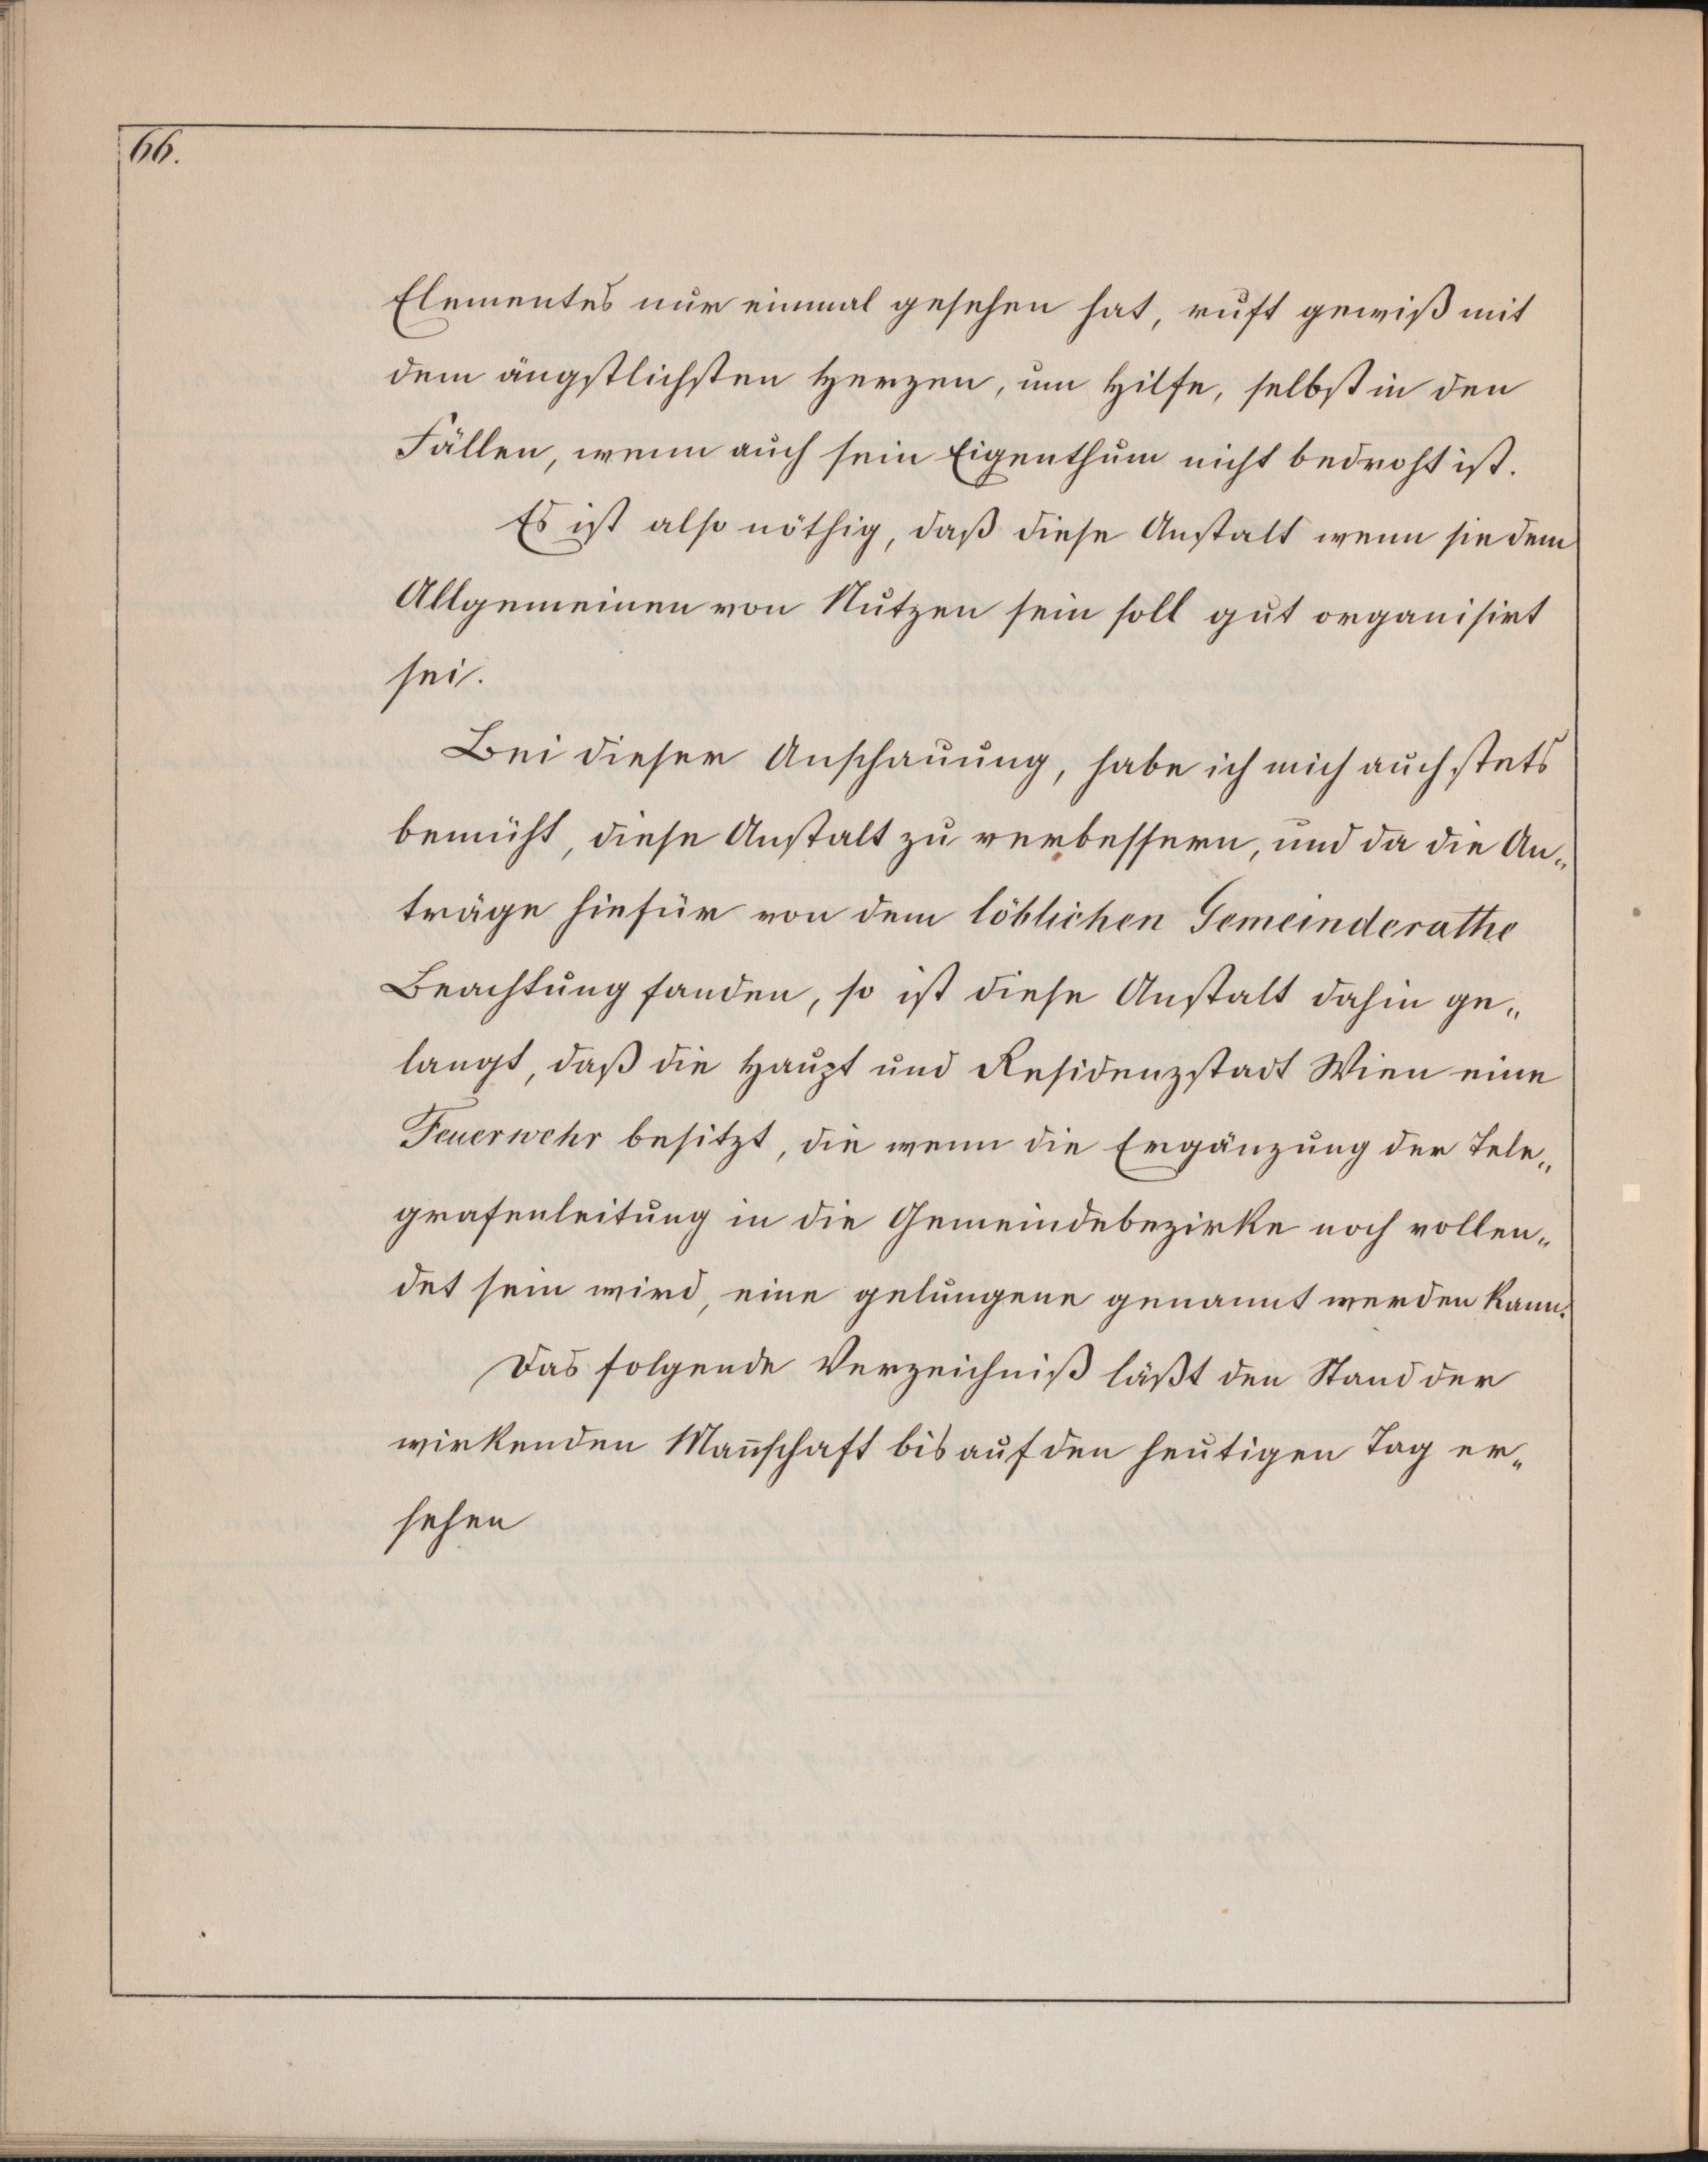 66.
Elementes nur einmal gesehen hat, ruft gewiß mit
dem ängstlichsten Herzen, um Hilfe, selbst in den
Fällen, wenn auch sein Eigenthum nicht bedroht ist.
Es ist also nöthig, daß diese Anstalt wenn sie dem
Allgemeinen von Nutzen sein soll gut organisirt
sei.
Bei dieser Anschauung, habe ich mich auch stets
bemüht, diese Anstalt zu verbessern, und da die An„
träge hiefür von dem löblichen Gemeinderathe
Beachtung fanden, so ist diese Anstalt dahin ge„
langt, daß die Haupt und Residenzstadt Wien eine
Feuerwehr besitzt, die wenn die Ergänzung der Tele„
grafenleitung in die Gemeindebezirke noch vollen„
det sein wird, eine gelungene genannt werden kann.
Das folgende Verzeichniß läßt den Stand der
wirkenden Man̄schaft bis auf den heutigen Tag er„
sehen